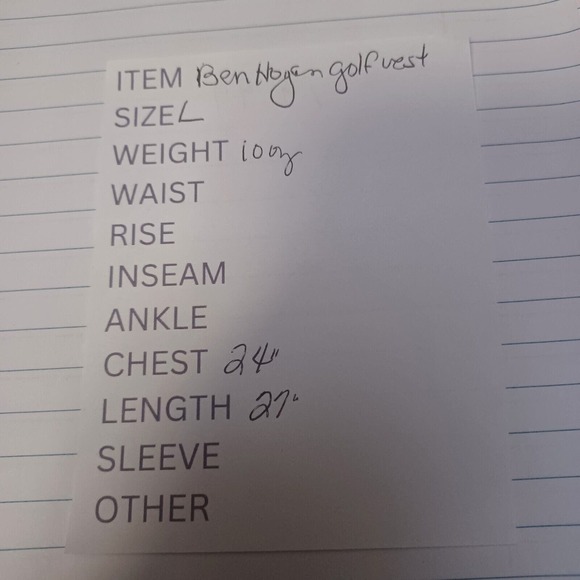 ITEM Ben Hogan golf vest
SIZE L
WEIGHT 10 oz
WAIST
RISE
INSEAM
ANKLE
CHEST 24"
LENGTH 27"
SLEEVE
OTHER